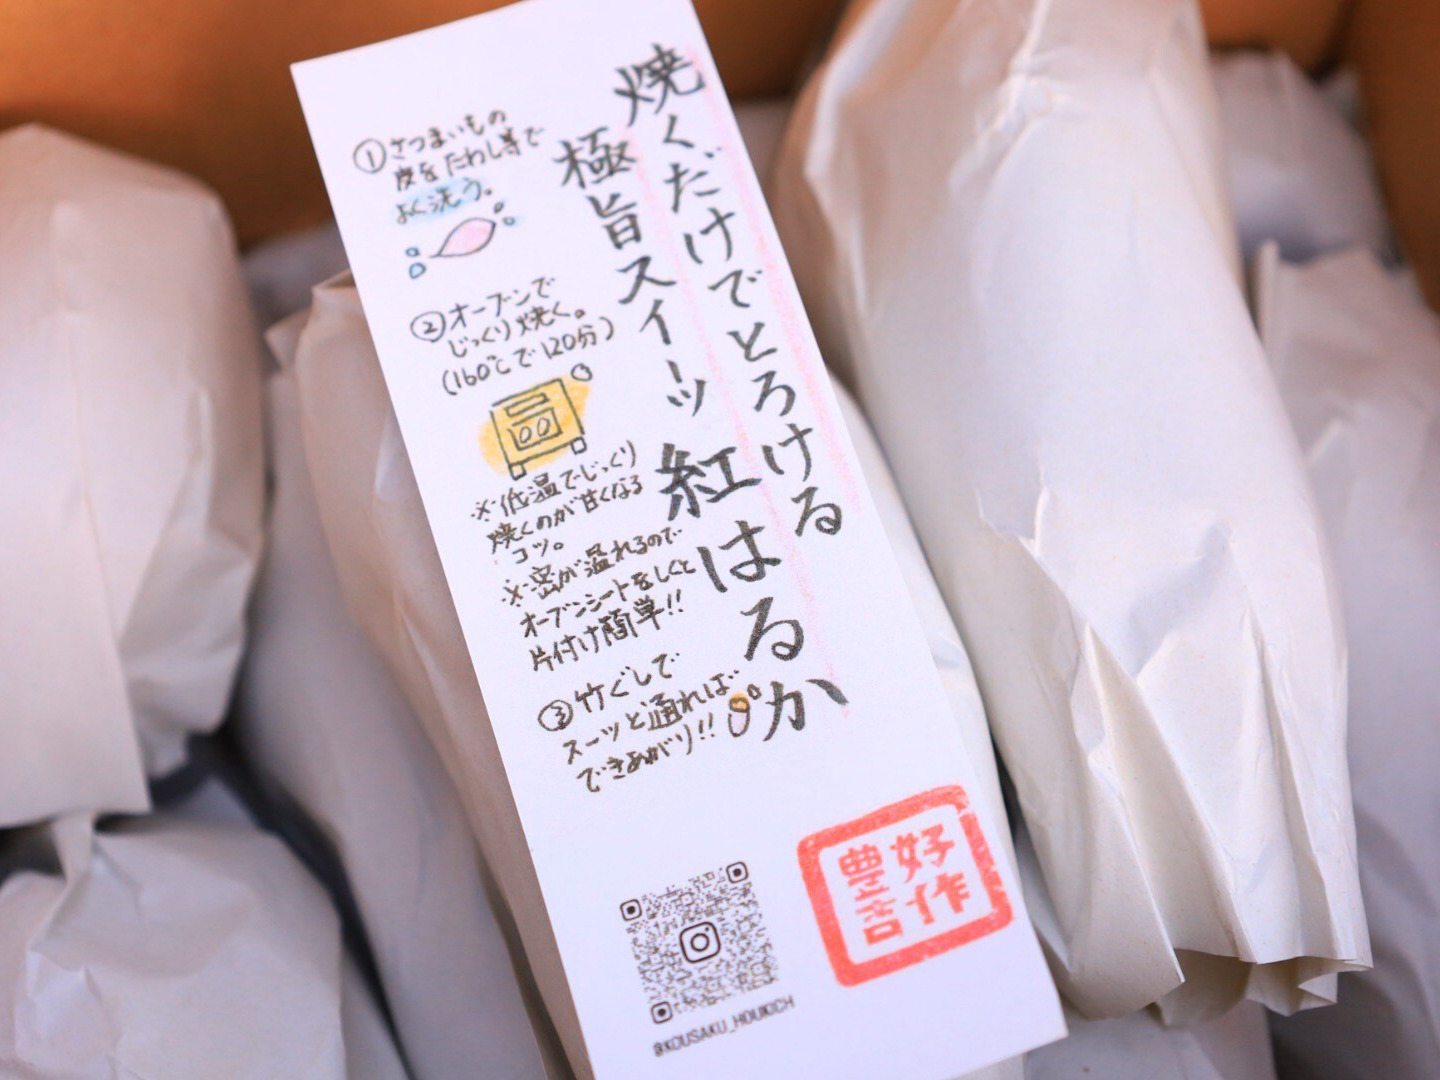 焼くだけでとろける
極旨スイーツ 紅はるか
①さつまいもの
皮をたわし等で
よく洗う。
②オーブンで
じっくり焼く。
(160℃で120分)
※低温でじっくり
焼くのが甘くなる
コツ。
※密が溢れるので
オーブンシートをしくと
片付け簡単!!
③竹ぐしで
スーッと通れば
できあがり!!
好作
豊吉
@KOUSAKU_HOUKICH